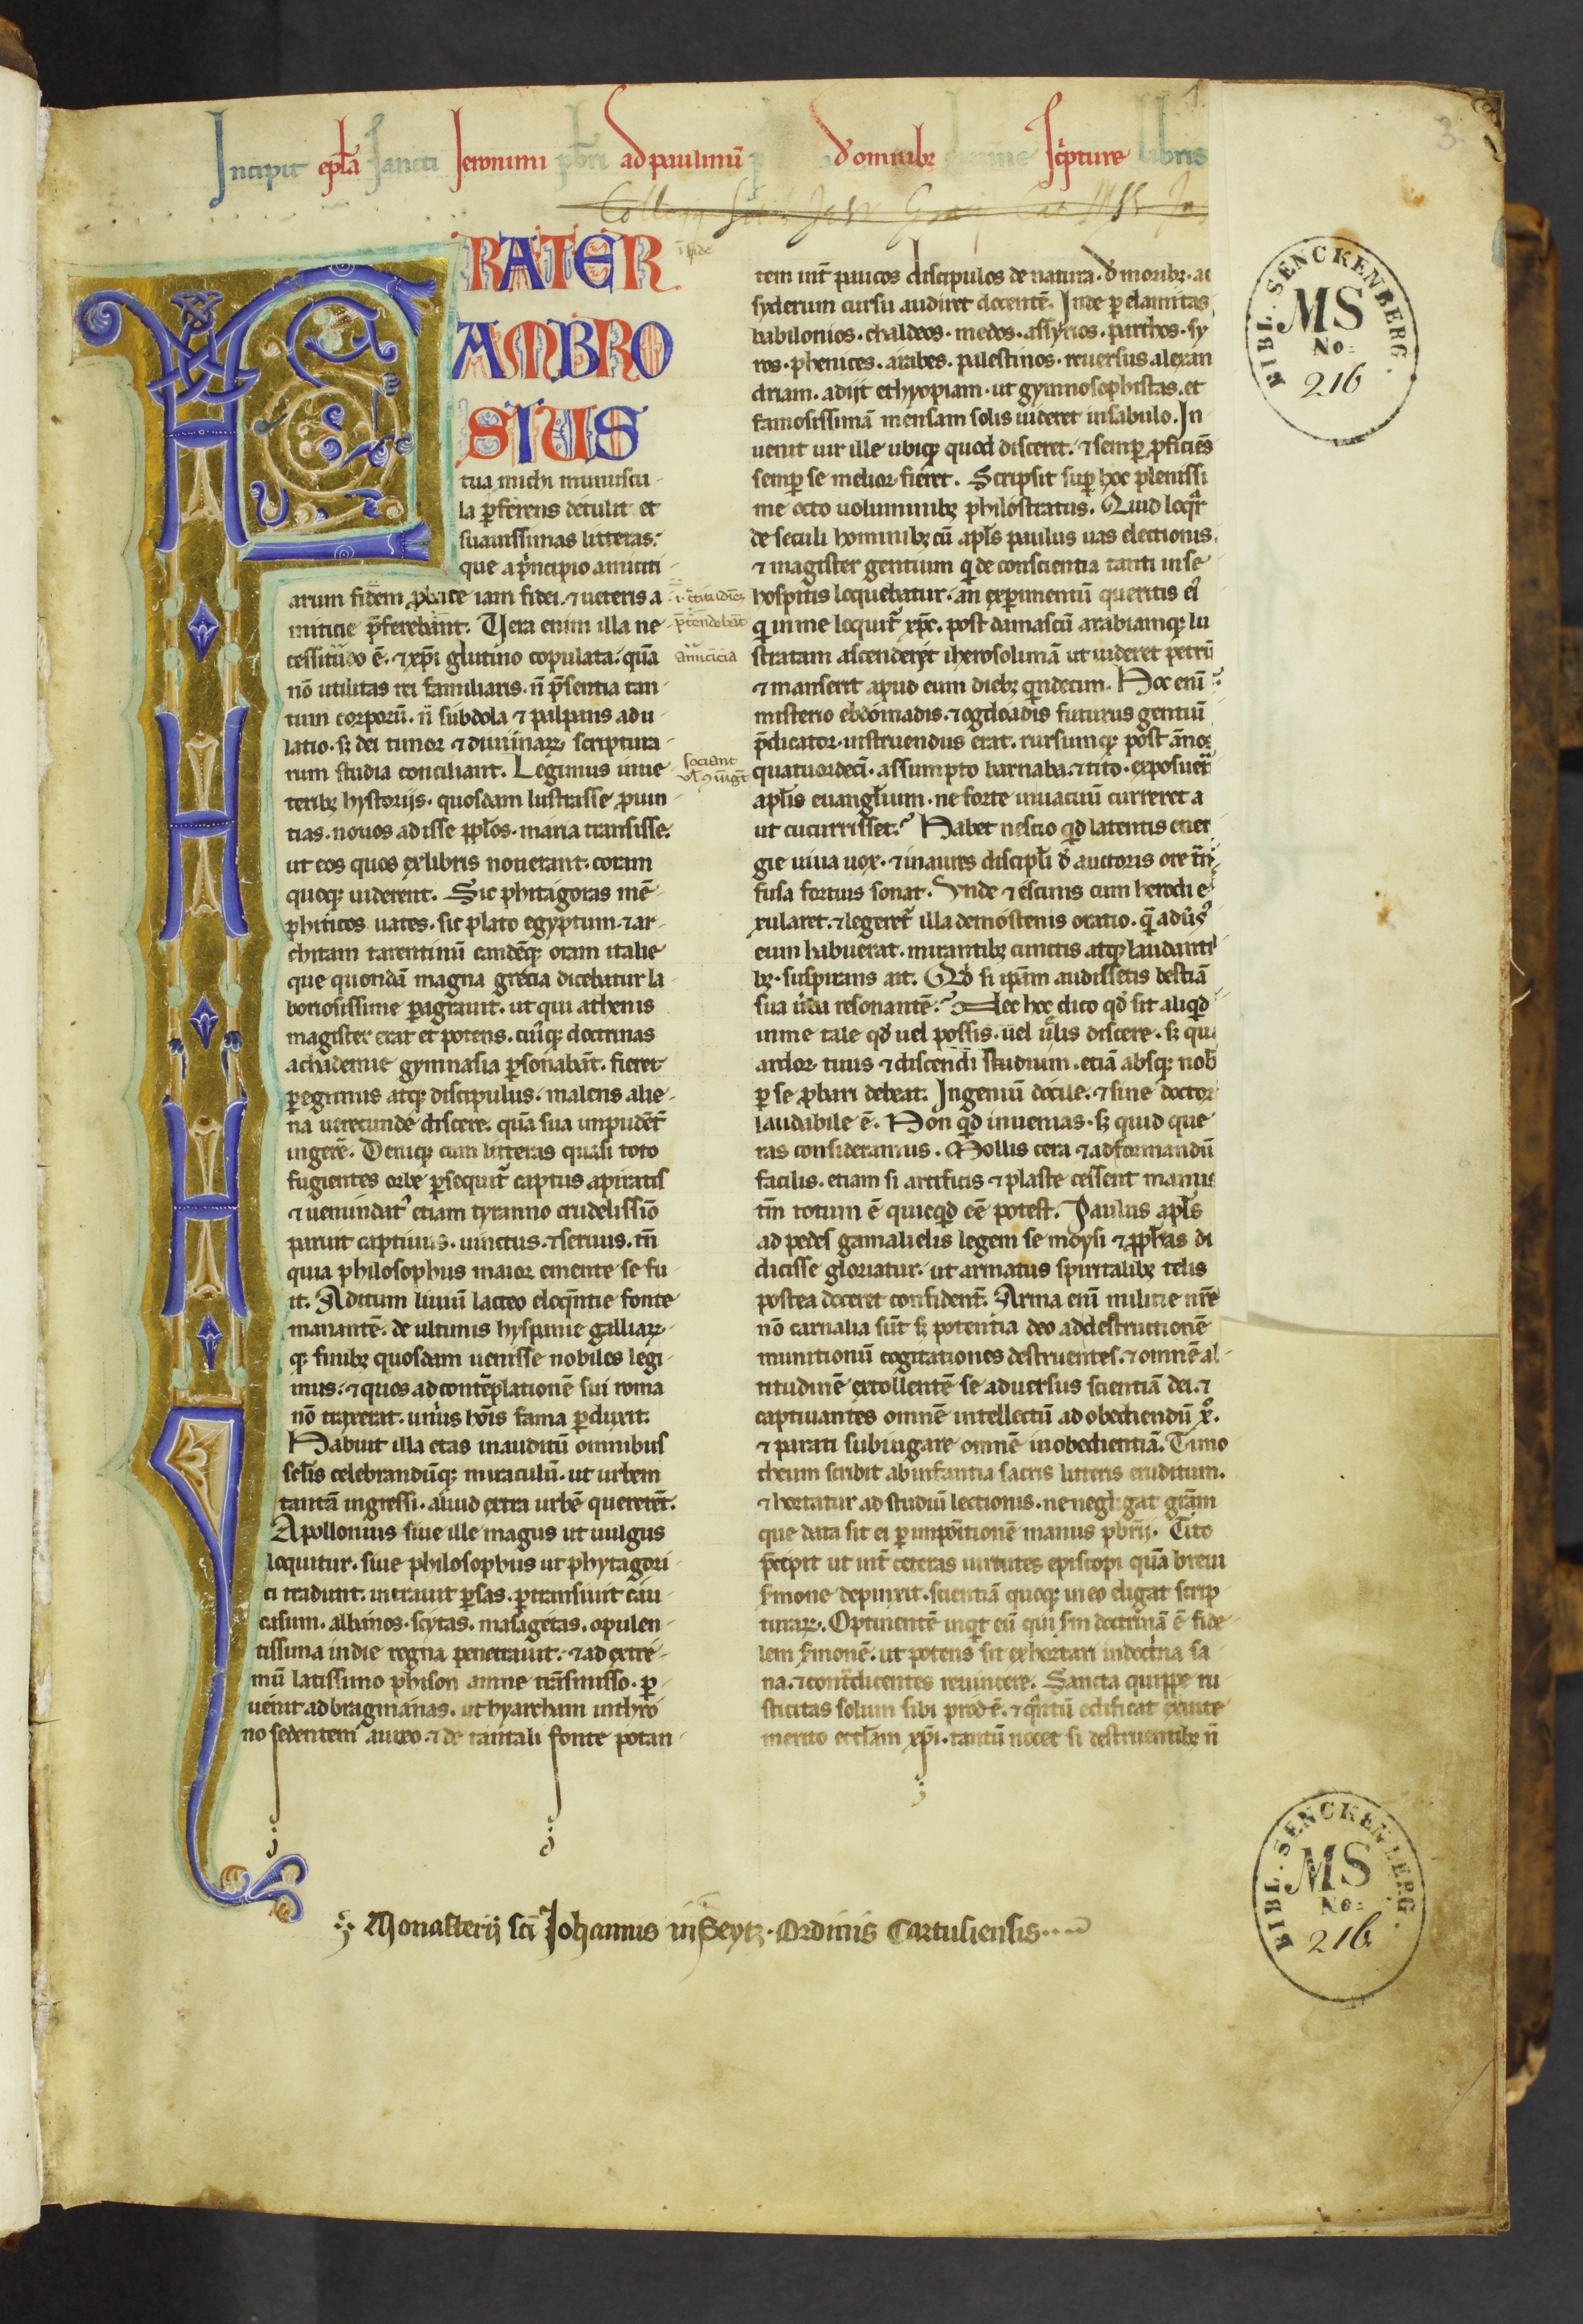 1.
3
Incipit epl̄a Sancti Ieronimi pb̄ri ad paulinū d' omnibꝫ Sc̓pture libris
FRATER
AMBRO
SIUS
tua michi munuscu-
la ꝑferens detulit et
suauissimas litteras.
que a p̓ncipio amiciti-
arum fidem ꝓbate iam fidei ⁊ ueteris a-
micicie p̄ferebant. Vera enim illa ne-
cessitudo ē. ⁊ xp̄i glutino copulata. quā
nō utilitas rei familiaris. n̄ p̄sentia tan-
tum corporū. n̄ subdola ⁊ palpans adu-
latio. sꝫ dei timor ⁊ diuinaꝝ scriptura-
rum studia conciliant. Legimus in ue-
teribꝫ hystorijs. quosdam lustrasse ꝓuin-
cias. nouos adisse pp̄los. maria transisse.
ut eos quos ex libris nouerant. coram
quoqꝫ uiderent. Sic phitagoras mē-
phiticos uates. sic plato egyptum. ⁊ ar-
chitam tarentinū eandēqꝫ oram italie
que quondā magna grecia dicebatur la-
boriosissime ꝑagrauit. ut qui athenis
magister erat et potens. cui̓qꝫ doctrinas
achademie gymnasia ꝑsonabāt. fieret
ꝑegrinus atqꝫ discipulus. malens alie-
na uerecunde discere. quā sua impudēt̄
ingerē. Deniqꝫ cum litteras quasi toto
fugientes orbe ꝑsequit̄ captus a piratis
⁊ uenundat᾽ etiam tyranno crudelissīo
paruit captiuus. uinctus. ⁊ seruus. tn̄
quia philosophus maior emente se fu-
it. Ad titum liuiū lacteo eloq̄ntie fonte
manantē. de ultimis hyspanie galliaꝝ-
qꝫ finibꝫ quosdam uenisse nobiles legi-
mus. ⁊ quos ad contēplationē sui roma
nō traxerat. uni᾽us hōis fama ꝑduxit.
Habuit illa etas inauditū omnibus
sel̄is celebrandūqꝫ miraculū. ut urbem
tantā ingressi. aliud extra urbē quererēt.
Apollonius siue ille magus ut uulgus
loquitur. siue philosophus ut phytagori-
ci tradunt. intrauit ꝑsas. ꝑtransiuit cau-
casum. albanos. scytas. masagetas. opulen-
tissima indie regna penetrauit. ⁊ ad extre-
mū latissimo phison amne trāsmisso. ꝑ-
uenit ad bragmanas. ut hyarcham in thro-
no sedentem aureo. ⁊ de tantali fonte potan-
p̄tendebāt
amicicia
sociant
tem int̄ paucos discipulos de natura. d' moribꝫ. ac
syderum cursu audiret docentē. Inde ꝑ elamitas
babilonios. chaldeos. medos. assyrios. parthos. sy
ros. phenices. arabes. palestinos. reuersus alexan
driam. adijt ethyopiam. ut gymnosophistas. et
famosissimā mensam solis uideret in sabulo. In-
uenit uir ille ubiqꝫ quod disceret. ⁊ semꝑ ꝓficiēs
semꝑ se melior fieret. Scripsit suꝑ hoc plenissi
me octo uoluminibꝫ philostratus. Quid loqr̄
de seculi hominibꝫ cū apl̄s paulus uas electionis.
⁊ magister gentium q̓ de conscientia tanti in se
hospitis loquebatur. an experimentū queritis ei᾽
q̓ in me loquit̄ xp̄c. post damascū arabiamqꝫ lu
stratam ascenderet iherosolimā ut uideret petrū
⁊ manserit apud eum diebꝫ q̓ndecim. Hoc enī
misterio ebdomadis. ⁊ ogdoadis futurus gentiū
p̄dicator instruendus erat. rursumqꝫ post ānos
quatuordecī. assumpto barnaba. ⁊ tito. exposuer̄
apl̄is euangl̄ium. ne forte in uacuū curreret a
ut cucurrisset. Habet nescio qd̓ latentis ener
gie uiua uox. ⁊ in aures discipl̓i d' auctoris ore t̄ns
fusa fortius sonat. Vnde ⁊ escinis cum herodi e
xularet. ⁊ legeret̄ illa demostenis oratio. q̄ adu̓s᾽
eum habuerat. mirantibꝫ cunctis atqꝫ laudanti
bꝫ. suspirans ait. Qd̓ si ip̄am audissetis bestiā
sua u̓ba resonantē. Nec hoc dico qd̓ sit aliqd̓
in me tale qd̓ uel possis. uel u̓lis discere. sꝫ qui
ardor tuus ⁊ discendi studium. etiā absqꝫ nob
ꝑ se ꝓbari debeat. Ingeniū docile. ⁊ sine doctor
laudabile ē. Non qd̓ inuenias. sꝫ quid que
ras consideramus. Mollis cera ⁊ ad formandū
facilis. etiam si artificis ⁊ plaste cessent manus
tn̄ totum ē quicqd̓ eē potest. Paulus apl̄s
ad pedes gamalielis legem se moysi ⁊ pp̄has di
dicisse gloriatur. ut armatus spiritalibꝫ telis
postea doceret confident̄. Arma enī militie nr̄e
nō carnalia sūt sꝫ potentia deo ad destructionē
munitionū cogitationes destruentes. ⁊ omnē al-
titudinē extollentē se aduersus scientiā dei. ⁊
captiuantes omnē intellectū ad obediendū x᾽.
⁊ parati subiugare omnē inobedientiā. Timo
theum scribit ab infantia sacris litteris eruditum.
⁊ hortatur ad studiū lectionis. ne negligat grām
que data sit ei ꝑ impositionē manus pb̄rij. Tito
p̄cipit ut int̄ ceteras uirtutes episcopi quā breui
s̓mone depinxit. scientiā quoqꝫ in eo eligat scrip
turaꝝ. Optinentē inqt̓ eū qui sm̄ doctrinā ē fide-
lem s̓monē. ut potens sit exhortari in doctrina sa
na. ⁊ contradicentes reuincere. Sancta quippe ru
sticitas solum sibi prod ē. ⁊ q̓ntū edificat ex uite
merito eccl̄am xp̄i. tantū nocet si destruentibꝫ n̄
Monasterij sci᷃ Johannis in Seytz. Ordinis Cartusiensis.
BIBL. SENCKENBERG.
MS
No:
216
BIBL. SENCKENBERG.
MS
No:
216